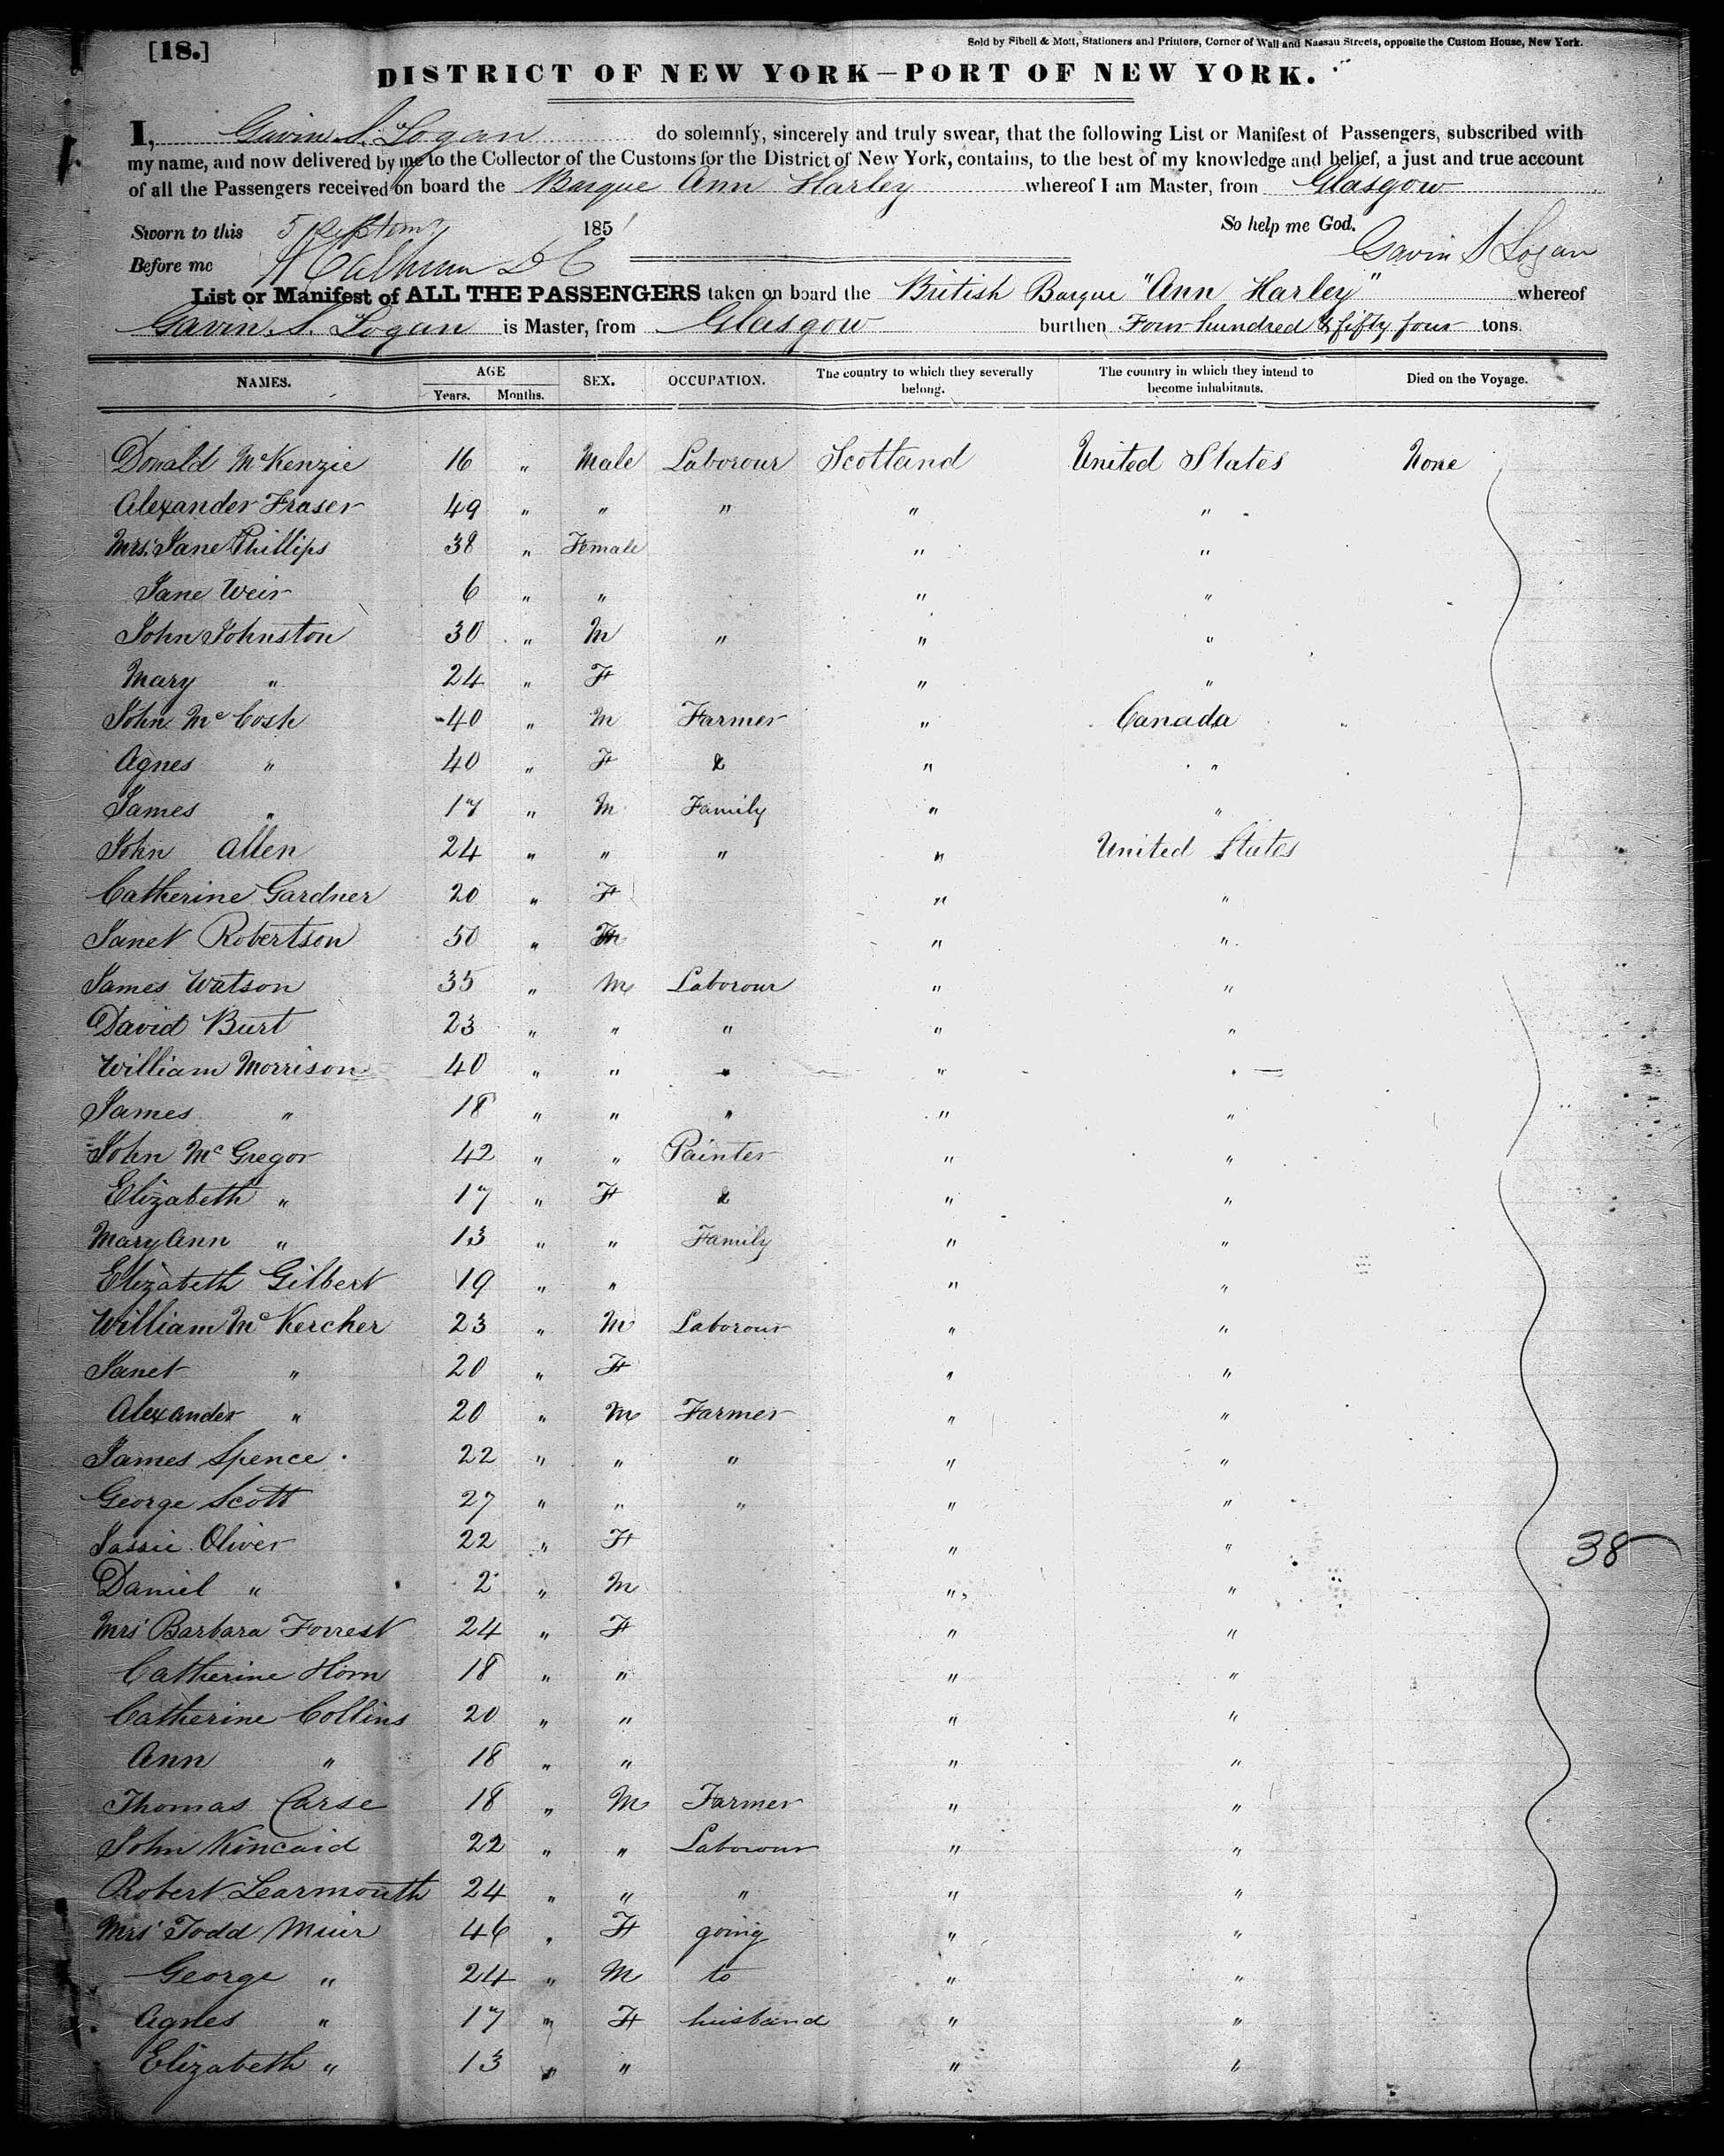 [18.]
Sold by Sibell & Mott, Stationers and Printers, Corner of Wall and Nassau Streets, opposite the Custom House, New York.
DISTRICT OF NEW YORK—PORT OF NEW YORK.
I, Gavin S. Logan do solemnly, sincerely and truly swear, that the following List or Manifest of Passengers, subscribed with
my name, and now delivered by me to the Collector of the Customs for the District of New York, contains, to the best of my knowledge and belief, a just and true account
of all the Passengers received on board the Barque Ann Harley whereof I am Master, from Glasgow
Sworn to this 5 Septemr 1851 So help me God.
Before me Gavin S Logan
List or Manifest of ALL THE PASSENGERS taken on board the British Barque "Ann Harley" whereof
Gavin S. Logan is Master, from Glasgow burthen Four hundred & fifty four tons.
NAMES. AGE Years. Months. SEX. OCCUPATION. The country to which they severally belong. The country in which they intend to become inhabitants. Died on the Voyage.
Donald McKenzie 16 " Male Laborour Scotland United States None
Alexander Fraser 49 " " " " "
Mrs. Jane Phillips 38 " Female " "
Jane Weir 6 " " " "
John Johnston 30 " M " " "
Mary " 24 " F " "
John McCosh 40 " M Farmer " Canada
Agnes " 40 " F & " "
James " 17 " M Family " "
John Allen 24 " " " " United States
Catherine Gardner 20 " F " "
Janet Robertson 50 " F " "
James Watson 35 " M Laborour " "
David Burt 23 " " " " "
William Morrison 40 " " " " "
James " 18 " " " " "
John McGregor 42 " " Painter " "
Elizabeth " 17 " F & " "
Mary Ann " 13 " " Family " "
Elizabeth Gilbert 19 " " " "
William McKercher 23 " M Laborour " "
Janet " 20 " F " "
Alexander " 20 " M Farmer " "
James Spence 22 " " " " "
George Scott 27 " " " " "
Jassie Oliver 22 " F " " 38
Daniel " 2 " M " "
Mrs Barbara Forrest 24 " F " "
Catherine Horn 18 " " " "
Catherine Collins 20 " " " "
Ann " 18 " " " "
Thomas Carse 18 " M Farmer " "
John Kincaid 22 " " Laborour " "
Robert Learmonth 24 " " " " "
Mrs Todd Muir 46 " F going " "
George " 24 " M to " "
Agnes " 17 " F husband " "
Elizabeth " 13 " " " "